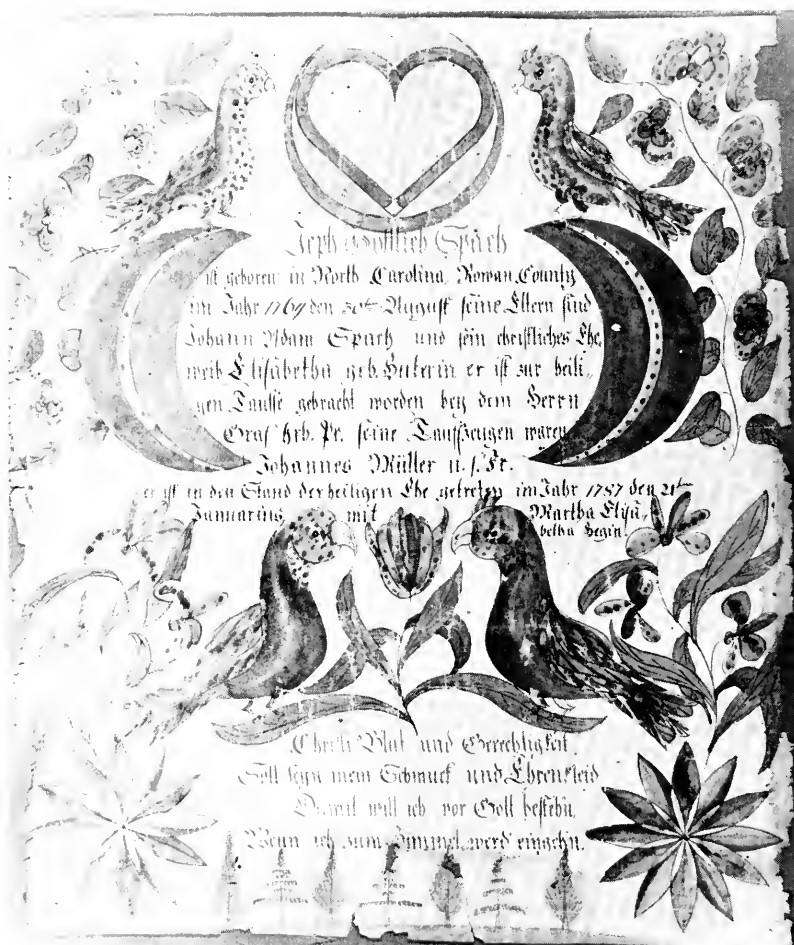 Jeph Gottlieb Spach
ist geboren in North Carolina, Rowan County
im Jahr 1764 den 30ten August seine Eltern sind
Johann Adam Spach und sein christliches Ehe,
weib Elisabetha geb. Huterin er ist zur heili,
gen Tauffe gebracht worden bey dem Herrn
Graf hrb. Pr. seine Tauffzeugen waren
Johannes Müller u. s. Fr.
er ist in den Stand der heiligen Ehe getreten im Jahr 1787 den 21ten
Januarius mit Martha Elisa,
betha Hegin.
Christi Blut und Gerechtigkeit,
Soll seyn mein Schmuck und Ehrenkleid
Damit will ich vor Gott bestehn,
Wenn ich zum Himmel werd eingehn.